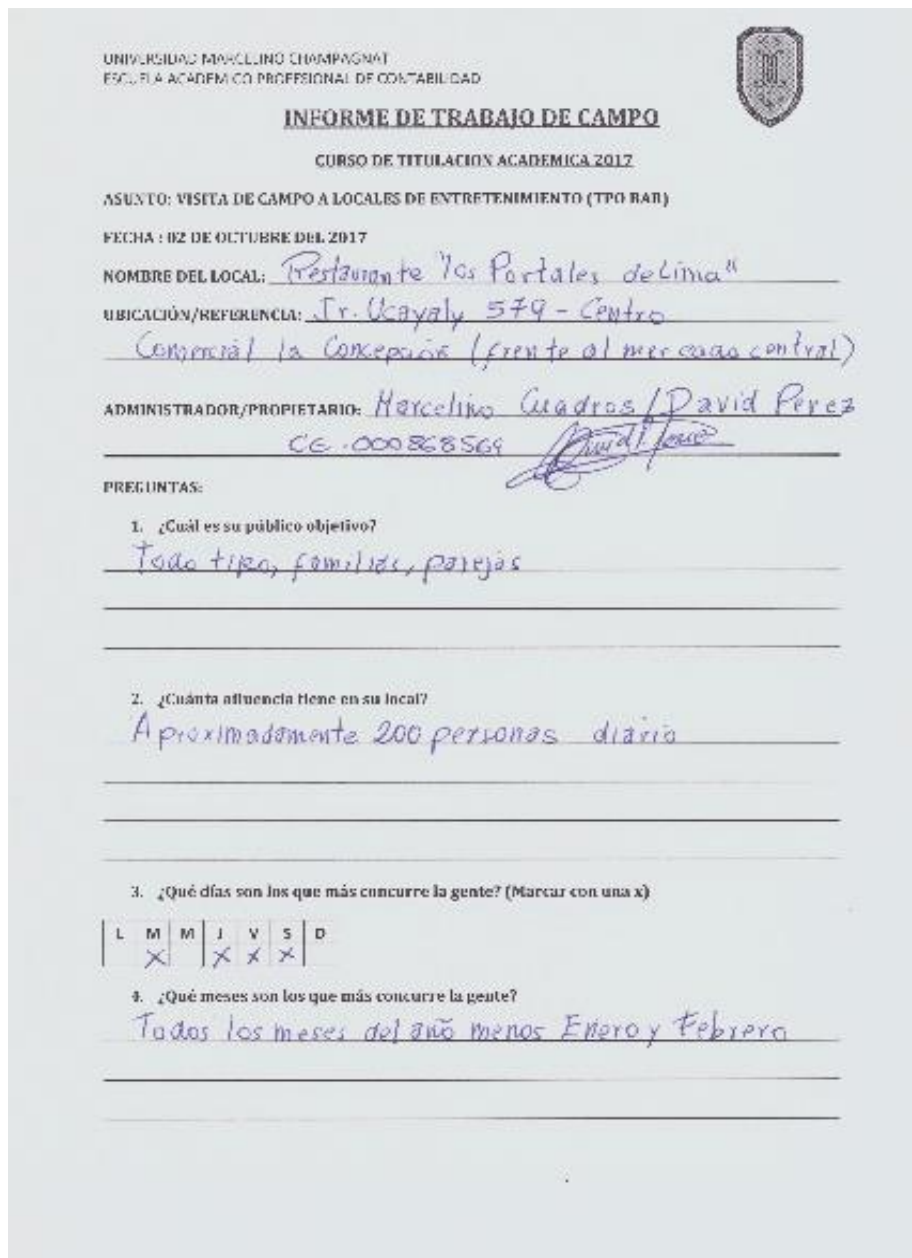 UNIVERSIDAD MARCELINO CHAMPAGNAT
ESCUELA ACADEMICO PROFESIONAL DE CONTABILIDAD
INFORME DE TRABAJO DE CAMPO
CURSO DE TITULACION ACADEMICA 2017
ASUNTO: VISITA DE CAMPO A LOCALES DE ENTRETENIMIENTO (TPO BAR)
FECHA : 02 DE OCTUBRE DEL 2017
NOMBRE DEL LOCAL: Restaurante "los Portales de Lima"
UBICACIÓN/REFERENCIA: Jr. Ucayaly 579 - Centro
Comercial la Concepción (frente al mercado central)
ADMINISTRADOR/PROPIETARIO: Marcelino Cuadros / David Perez
CE .000868569
PREGUNTAS:
1. ¿Cuál es su público objetivo?
Todo tipo, familias, parejas
2. ¿Cuánta afluencia tiene en su local?
Aproximadamente 200 personas diario
3. ¿Qué días son los que más concurre la gente? (Marcar con una x)
L M M J V S D
X X X X
4. ¿Qué meses son los que más concurre la gente?
Todos los meses del año menos Enero y Febrero